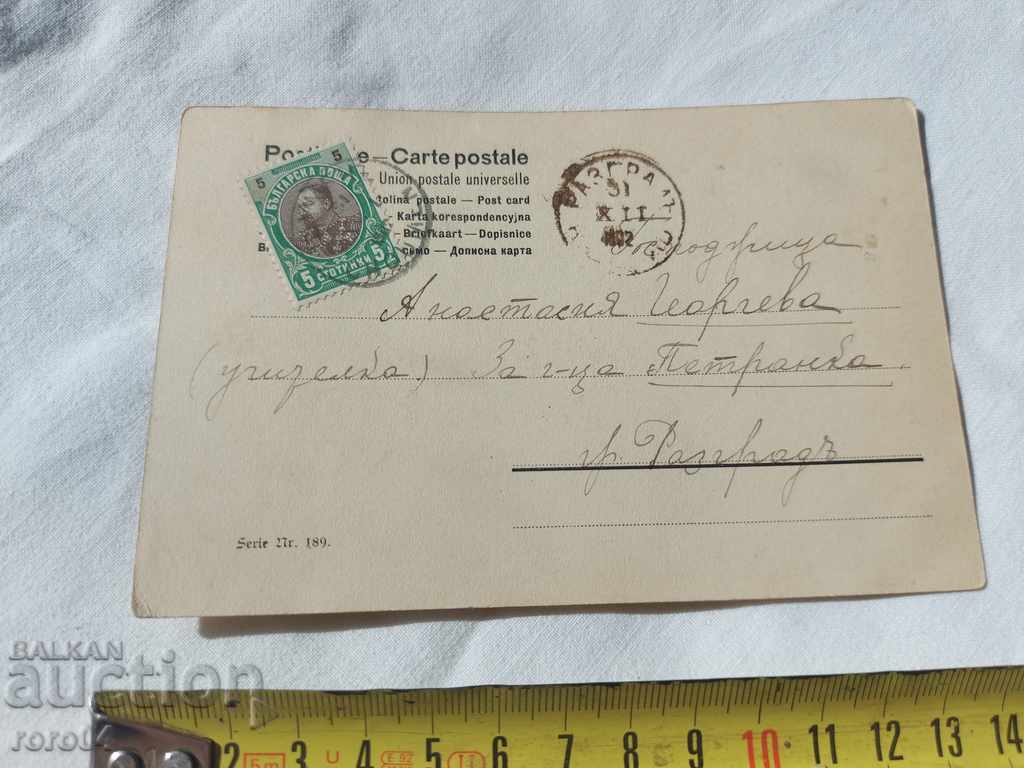 Carte postale
Union postale universelle
postale — Post card
Karta korespondencyjna
Briefkaart — Dopisnice
Дописна карта
5
5
БЪЛГАРСКА ПОЩА
5 СТОТИНКИ 5
РАЗГРАД
31
XII
1902
Господжица
Анастасия Георгева
(учителка) За г-ца Петранка.
гр. Разградъ
Serie Nr. 189.
BALKAN
auction
roro
2 5m 3 U 4 E 92 5 II 6 7 8 9 10 11 12 13 14